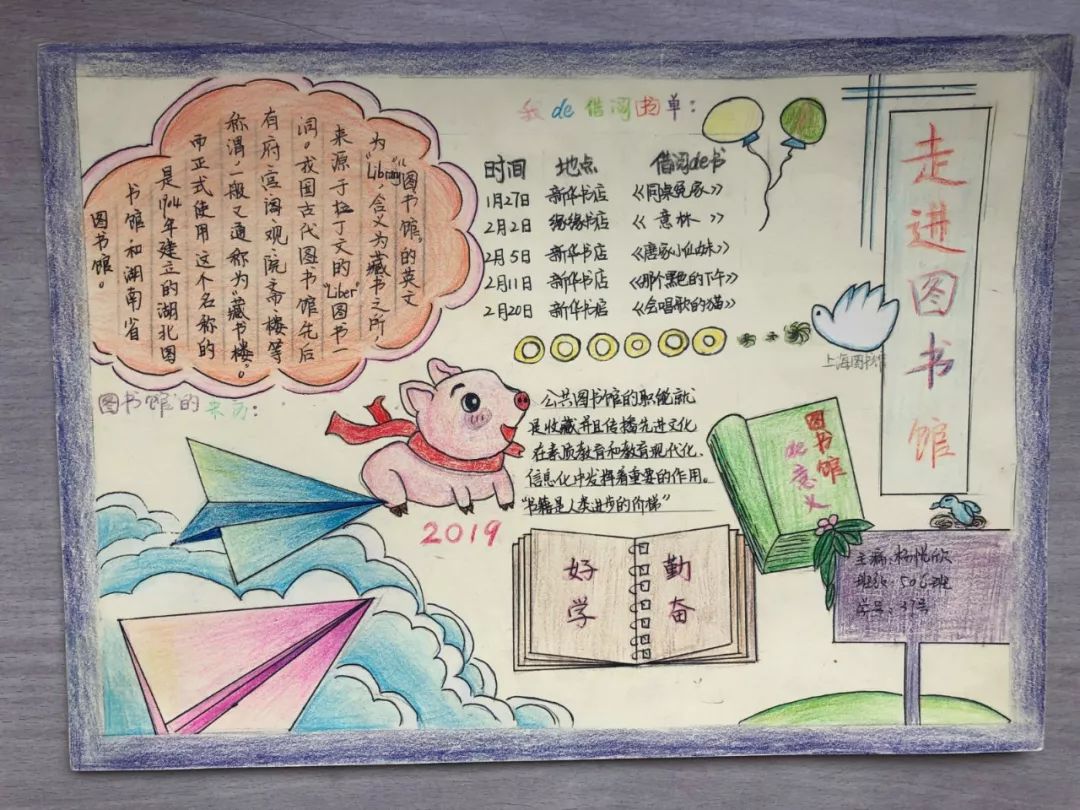 走进图书馆
我de借阅书单：
时间 地点 借阅de书
1月27日 新华书店 《同桌冤家》
2月2日 缘缘书店 《意林》
2月5日 新华书店 《唐家小仙妹》
2月11日 新华书店 《那个黑色的下午》
2月20日 新华书店 《会唱歌的猫》
“图书馆”的英文
为“Library”，含义为藏书之所，
来源于拉丁文的“Liber”图书一
词。我国古代图书馆先后
有府宫阁观院斋楼等
称谓，一般又通称为“藏书楼”。
而正式使用这个名称的
是1904年建立的湖北图
书馆和湖南省
图书馆。
图书馆的来历：
上海图书馆
公共图书馆的职能就
是收藏并且传播先进文化
在素质教育和教育现代化、
信息化中发挥着重要的作用。
“书籍是人类进步的阶梯”
图书馆
的意义
2019
好学
勤奋
主编：杨悦欣
班级：506班
学号：37号